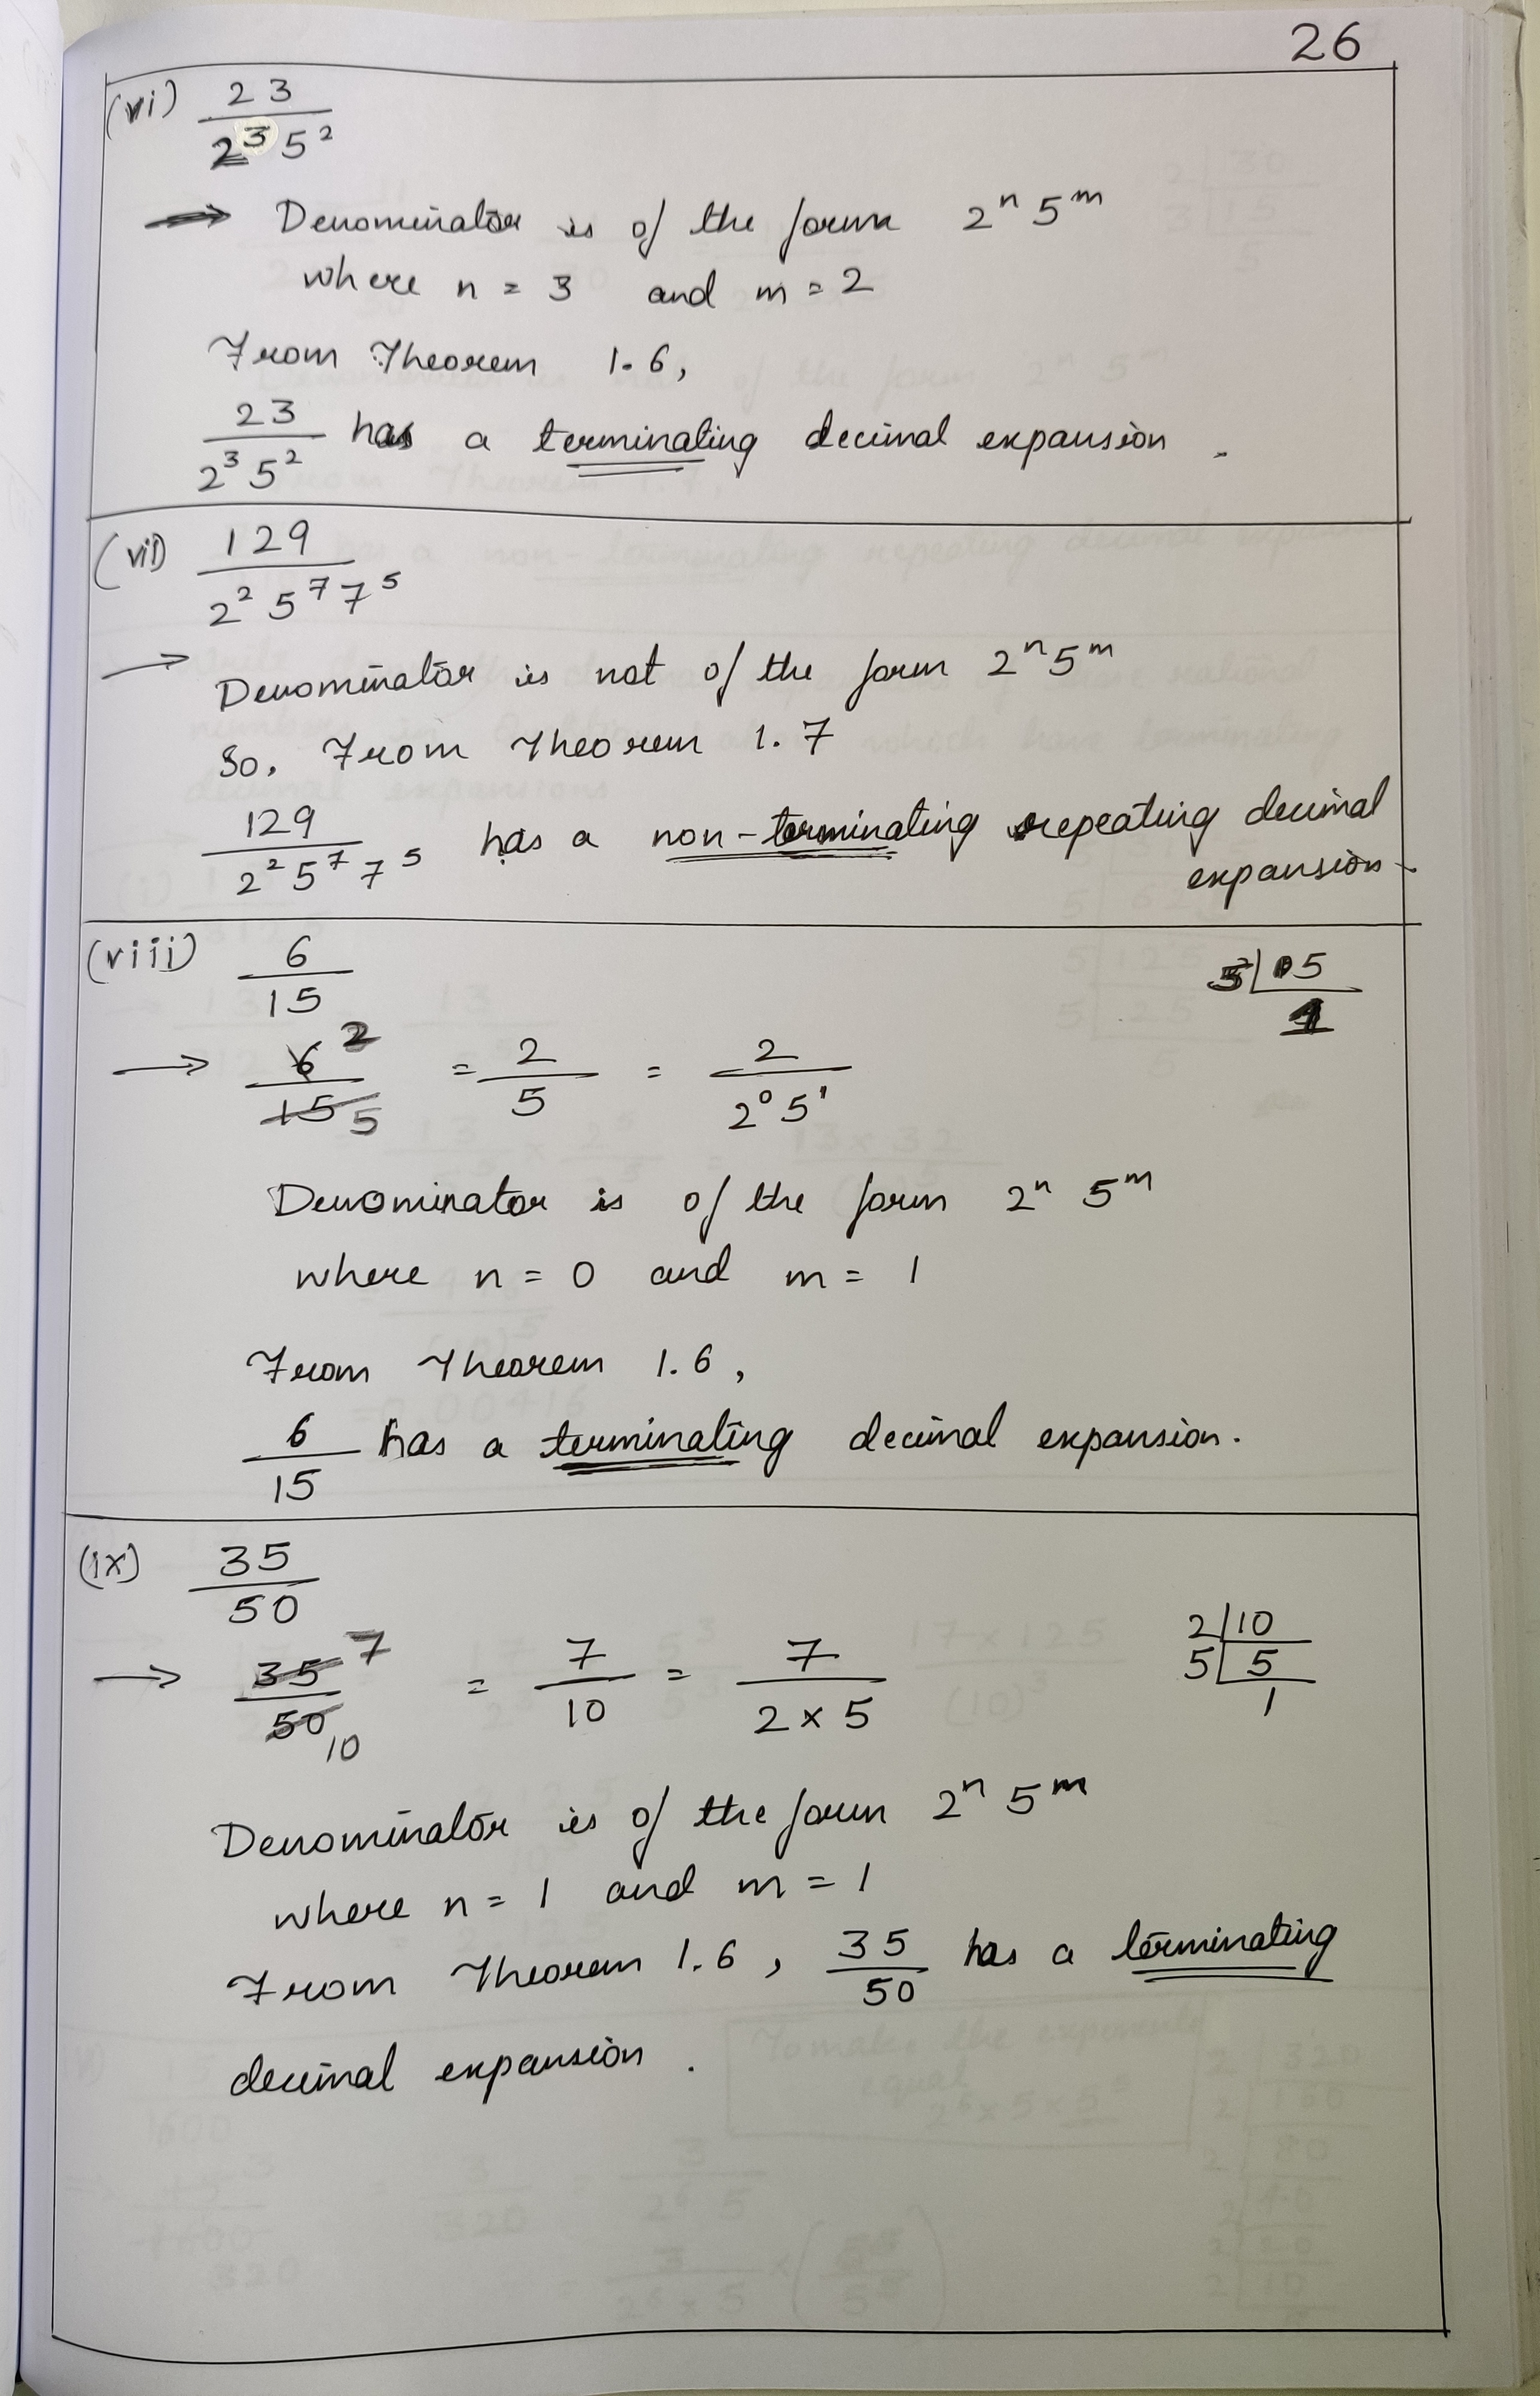 26
(vi) 23 / 2³ 5²
→ Denominator is of the form 2ⁿ 5ᵐ
where n = 3 and m = 2
From Theorem 1.6,
23 / 2³ 5² has a terminating decimal expansion.
(vii) 129 / 2² 5⁷ 7⁵
→ Denominator is not of the form 2ⁿ 5ᵐ
So, From Theorem 1.7
129 / 2² 5⁷ 7⁵ has a non-terminating repeating decimal
expansion.
(viii) 6 / 15
5 | 5
1
→ 6 2 / 15 5 = 2 / 5 = 2 / 2⁰ 5¹
Denominator is of the form 2ⁿ 5ᵐ
where n = 0 and m = 1
From Theorem 1.6,
6 / 15 has a terminating decimal expansion.
(ix) 35 / 50
→ 35 7 / 50 10 = 7 / 10 = 7 / 2 × 5
2 | 10
5 | 5
1
Denominator is of the form 2ⁿ 5ᵐ
where n = 1 and m = 1
From Theorem 1.6, 35 / 50 has a terminating
decimal expansion.